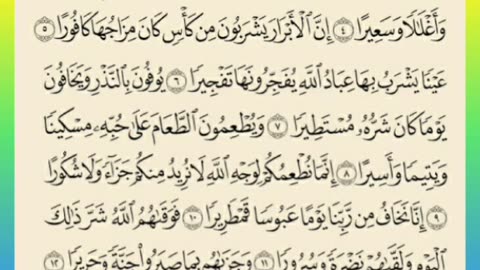 وَأَغْلَـٰلًا وَسَعِيرًا ٤ إِنَّ ٱلْأَبْرَارَ يَشْرَبُونَ مِن كَأْسٍ كَانَ مِزَاجُهَا كَافُورًا ٥
عَيْنًا يَشْرَبُ بِهَا عِبَادُ ٱللَّهِ يُفَجِّرُونَهَا تَفْجِيرًا ٦ يُوفُونَ بِٱلنَّذْرِ وَيَخَافُونَ
يَوْمًا كَانَ شَرُّهُۥ مُسْتَطِيرًا ٧ وَيُطْعِمُونَ ٱلطَّعَامَ عَلَىٰ حُبِّهِۦ مِسْكِينًا
وَيَتِيمًا وَأَسِيرًا ٨ إِنَّمَا نُطْعِمُكُمْ لِوَجْهِ ٱللَّهِ لَا نُرِيدُ مِنكُمْ جَزَآءً وَلَا شُكُورًا
٩ إِنَّا نَخَافُ مِن رَّبِّنَا يَوْمًا عَبُوسًا قَمْطَرِيرًا ١٠ فَوَقَىٰهُمُ ٱللَّهُ شَرَّ ذَٰلِكَ
ٱلْيَوْمِ وَلَقَّىٰهُمْ نَضْرَةً وَسُرُورًا ١١ وَجَزَىٰهُم بِمَا صَبَرُوا۟ جَنَّةً وَحَرِيرًا ١٢